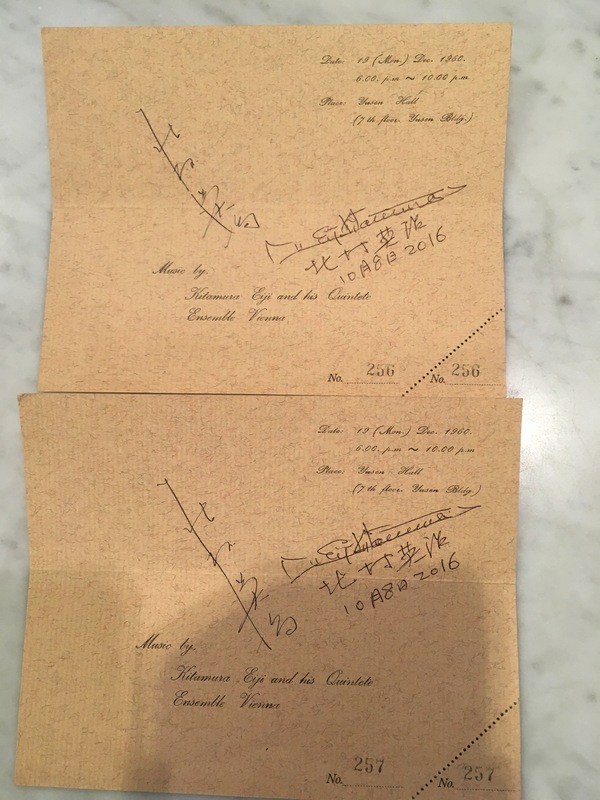 Date: 19 (Mon.) Dec. 1960.
6.00. p.m ~ 10.00 p.m.
Place: Yusen Hall
(7 th floor. Yusen Bldg.)
北村英治
Eiji Kitamura
北村英治
10月8日 2016
Music by,
Kitamura Eiji and his Quintete
Ensemble Vienna
No. 256
No. 256
Date: 19 (Mon.) Dec. 1960.
6.00. p.m ~ 10.00 p.m.
Place: Yusen Hall
(7 th floor. Yusen Bldg.)
北村英治
Eiji Kitamura
北村英治
10月8日 2016
Music by,
Kitamura Eiji and his Quintete
Ensemble Vienna
No. 257
No. 257